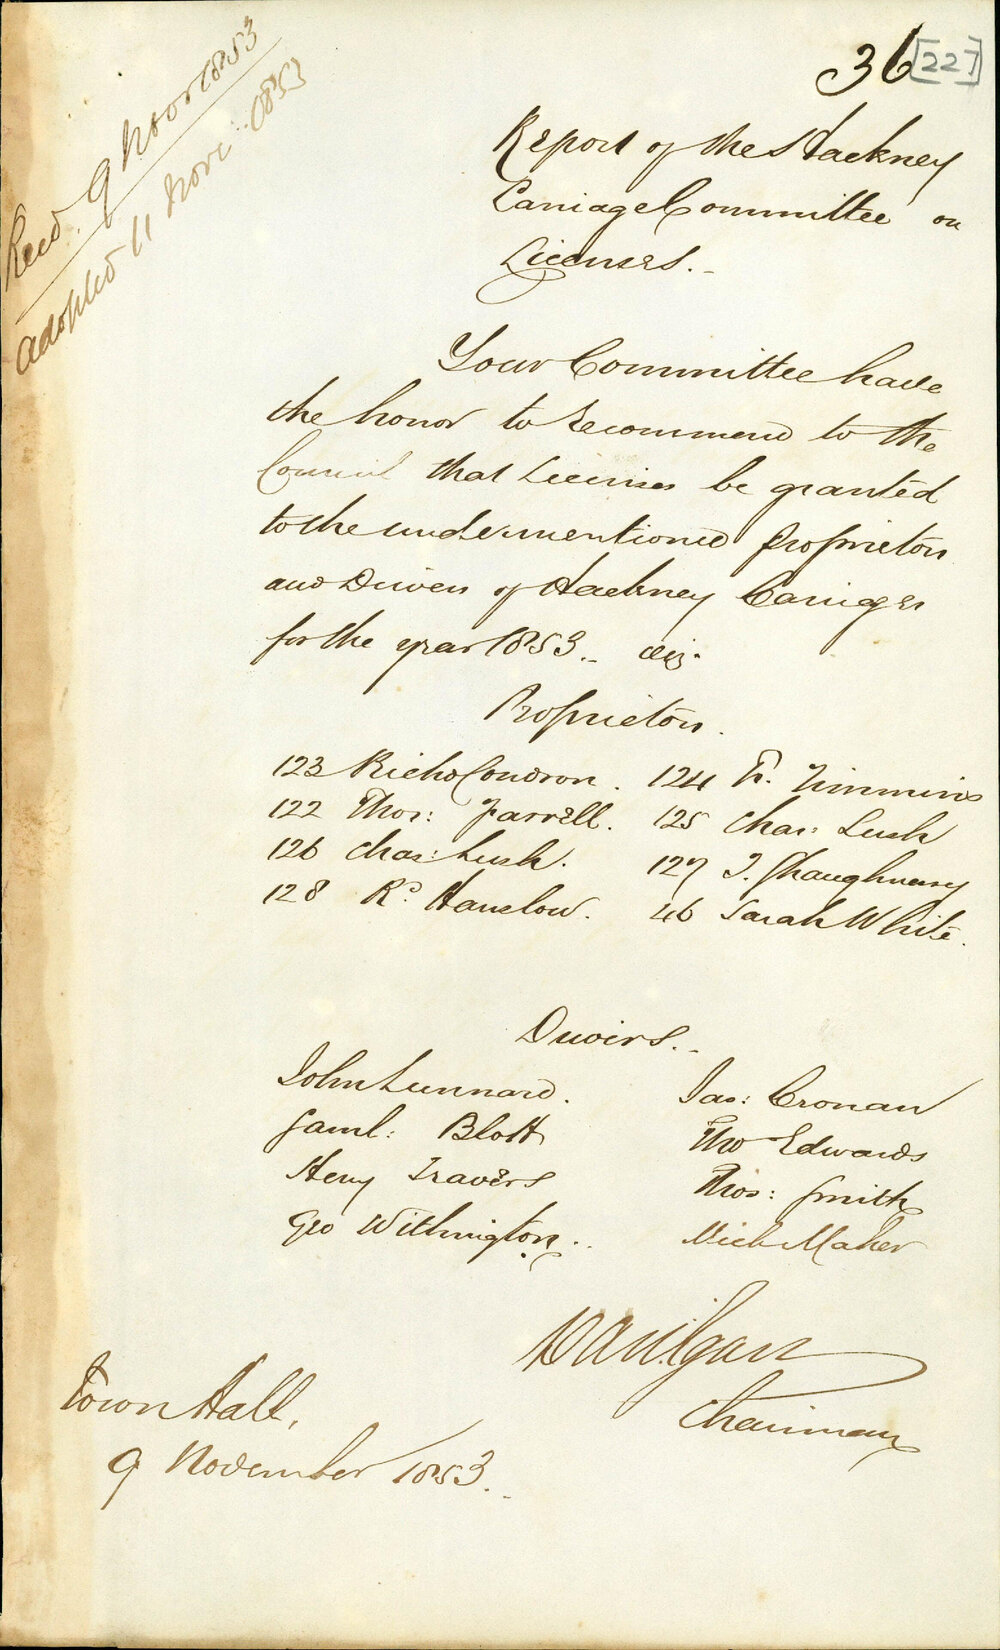 36 [227]
Recd. 9 Novr 1853
Adopted 11 Novr. 1853
Report of the Hackney
Carriage Committee on
Licenses.
Your Committee have
the honor to recommend to the
Council that Licenses be granted
to the undermentioned Proprietors
and Drivers of Hackney Carriages
for the year 1853. viz.
Proprietors.
123 Richd Condron. 124 Fr. Timmins
122 Thos: Farrell. 125 Chas: Lush
126 Chas: Lush. 127 J. Shaughnessy
128 Rd Hanslow. 46 Sarah White.
Drivers.
John Lunnard. Jas: Cronan
Saml: Blott Tho Edwards
Heny Travers Thos: Smith
Geo Withington. Mich Maher
Chairman
Town Hall,
9 November 1853.